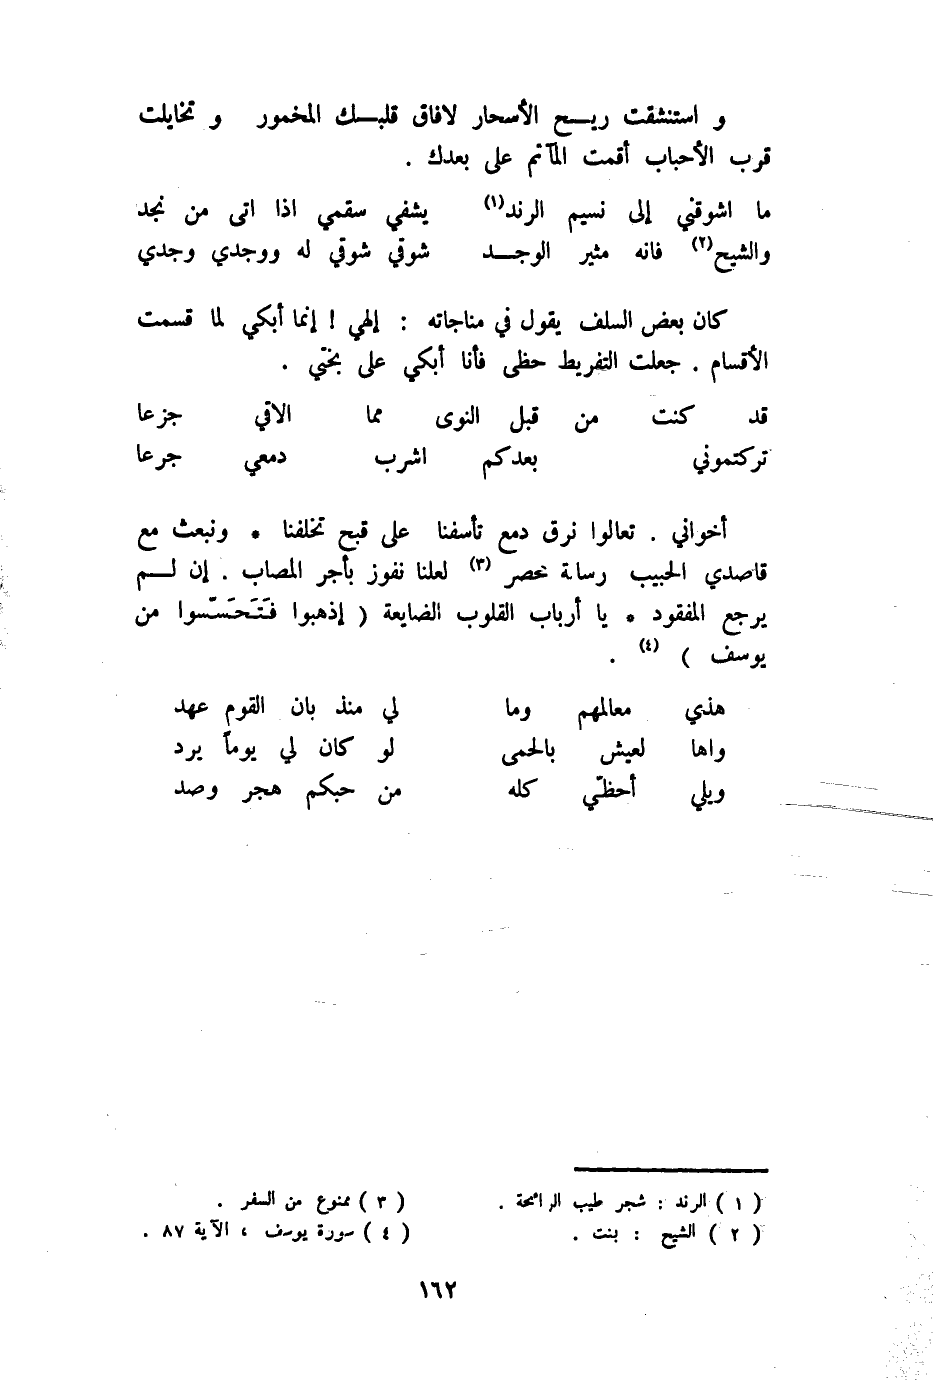 و استنشقت ريـح الأسحار لافاق قلبـك المخمور و تخايلت
قرب الأحباب أقمت المآتم على بعدك .
ما اشوقني إلى نسيم الرند(١) يشفي سقمي اذا اتى من نجد
والشيح(٢) فانه مثير الوجـد شوقي شوقي له ووجدي وجدي
كان بعض السلف يقول في مناجاته : إلهي ! إنما أبكي لما قسمت
الأقسام . جعلت التفريط حظى فأنا أبكي على بختي .
قد كنت من قبل النوى مما الاقي جزعا
تركتموني بعدكم اشرب دمعي جرعا
أخواني . تعالوا نرق دمع تأسفنا على قبح تخلفنا * ونبعث مع
قاصدي الحبيب رسالة محصر (٣) لعلنا نفوز بأجر المصاب . إن لـم
يرجع المفقود * يا أرباب القلوب الضايعة ( إذهبوا فَتَحَسَّسوا من
يوسف ) (٤) .
هذي معالمهم وما لي منذ بان القوم عهد
واها لعيش بالحمى لو كان لي يوماً يرد
ويلي أحظّي كله من حبكم هجر وصد
( ١ ) الرند : شجر طيب الرائحة .
( ٢ ) الشيح : بنت .
( ٣ ) ممنوع من السفر .
( ٤ ) سورة يوسف ، الآية ٨٧ .
١٦٢